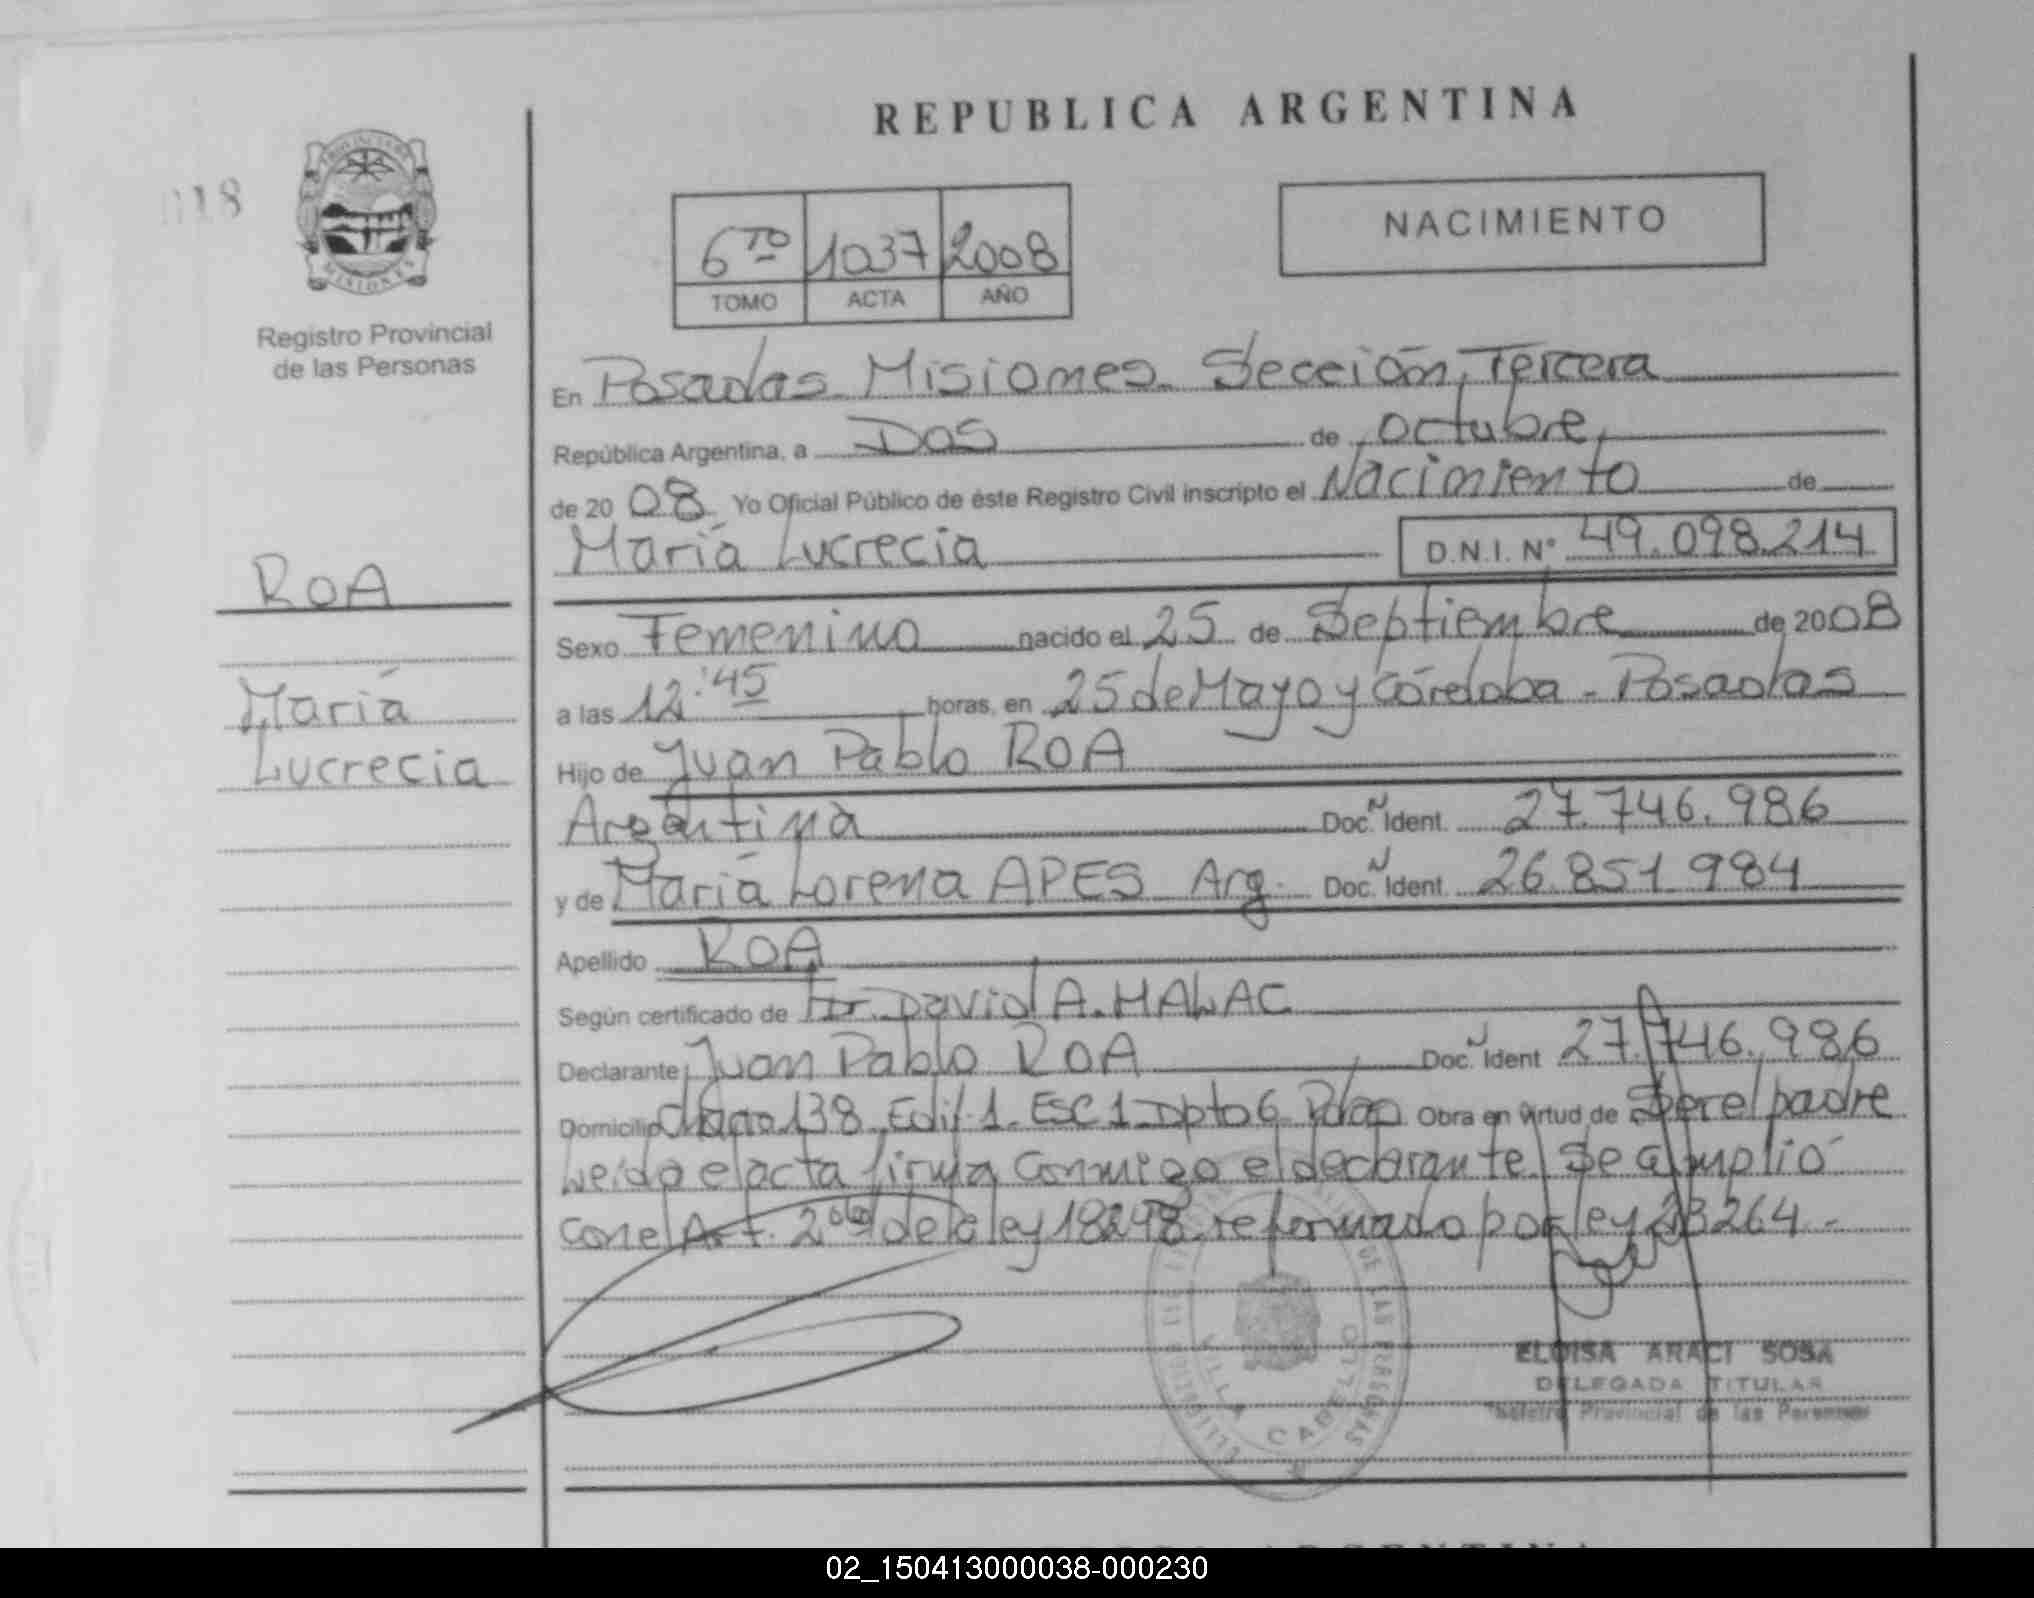 REPUBLICA ARGENTINA
118
PROVINCIA DE
MISIONES
Registro Provincial
de las Personas
6TO 1037 2008
TOMO ACTA AÑO
NACIMIENTO
En Posadas Misiones Sección Tercera
República Argentina, a Dos de octubre
de 2008 Yo Oficial Público de éste Registro Civil inscripto el Nacimiento de
María Lucrecia D.N.I. Nº 49.098.214
ROA
María
Lucrecia
Sexo Femenino nacido el 25 de Septiembre de 2008
a las 12:45 horas, en 25 de Mayo y Córdoba - Posadas
Hijo de Juan Pablo ROA
Argentina Doc. Ident. 27.746.986
y de María Lorena APES Arg. Doc. Ident. 26.851.984
Apellido ROA
Según certificado de Dr. David A. MALAC
Declarante Juan Pablo ROA Doc. Ident 27.746.986
Domicilio 138 Edif. 1. ESC 1 Dpto 6 Obra en virtud de Ser el padre
Leída el acta firma conmigo el declarante Se amplió
con el Art. 2do de la ley 18248 reformado por ley 23264.-
DE LAS PERSONAS
VILLA CABELLO
ELOISA ARACI SOSA
DELEGADA TITULAR
Registro Provincial de las Personas
REPUBLICA ARGENTINA
02_150413000038-000230